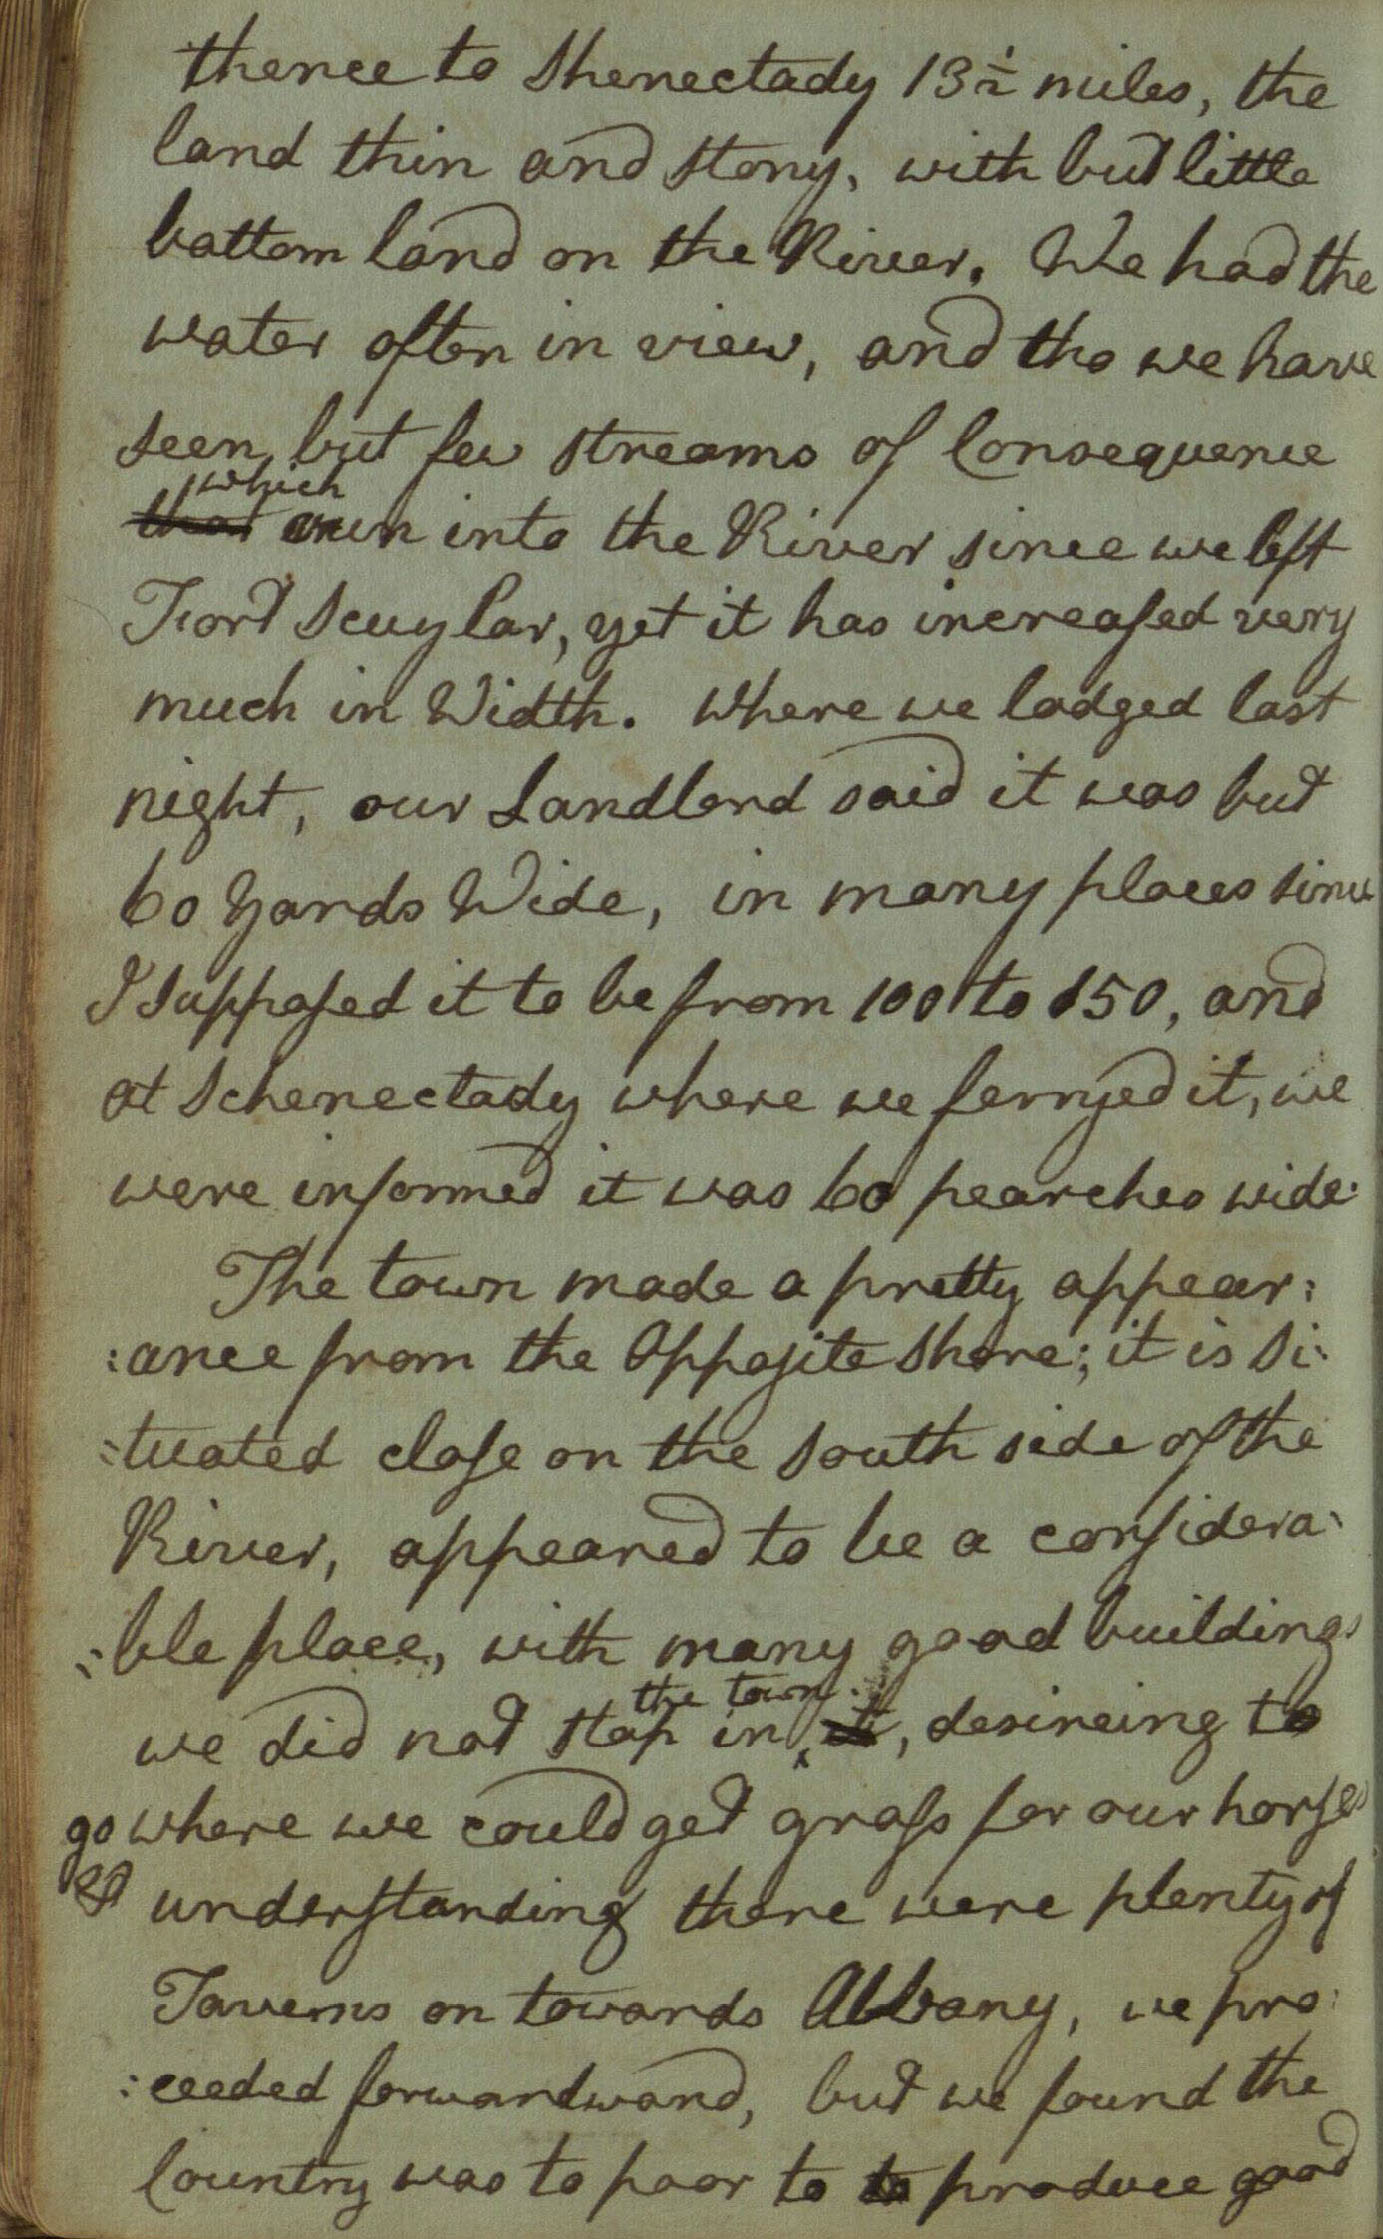 thence to Shenectady 13½ miles, the
land thin and stony, with but little
bottom land on the River. We had the
water often in view, and tho we have
seen but few streams of Consequence
which
that run into the River since we left
Fort Scuylar, yet it has increased very
much in Width. Where we lodged last
night, our Landlord said it was but
60 Yards Wide, in many places since
I supposed it to be from 100 to 150, and
at Schenectady where we ferryed it, we
were informed it was 60 pearches wide.
The town made a pretty appear:
:ance from the Opposite shore; it is si:
:tuated close on the south side of the
River, appeared to be a considera:
:ble place, with many good buildings
the town
we did not stop in it, desireing to
go where we could get grass for our horses
& understanding there were plenty of
Taverns on towards Albany, we pro:
:ceeded forwardward, but we found the
Country was to poor to to produce good